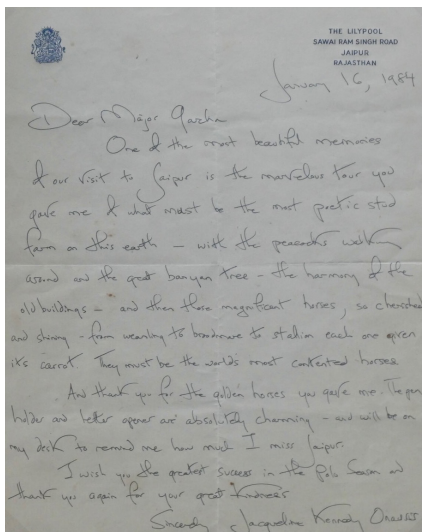 THE LILYPOOL
SAWAI RAM SINGH ROAD
JAIPUR
RAJASTHAN
January 16, 1984
Dear Major
One of the most beautiful memories
of our visit to Jaipur is the marvelous tour you
gave me of what must be the most poetic stud
farm on this earth — with the peacocks walking
around and the great banyan tree — the harmony of the
old buildings — and then those magnificent horses, so cherished
and shining — from weanling to broodmare to stallion each one given
its carrot. They must be the world's most contented horses
And thank you for the golden horses you gave me. The pen
holder and letter opener are absolutely charming — and will be on
my desk to remind me how much I miss Jaipur.
I wish you the greatest success in the Polo Season and
thank you again for your great kindness
Sincerely, Jacqueline Kennedy Onassis